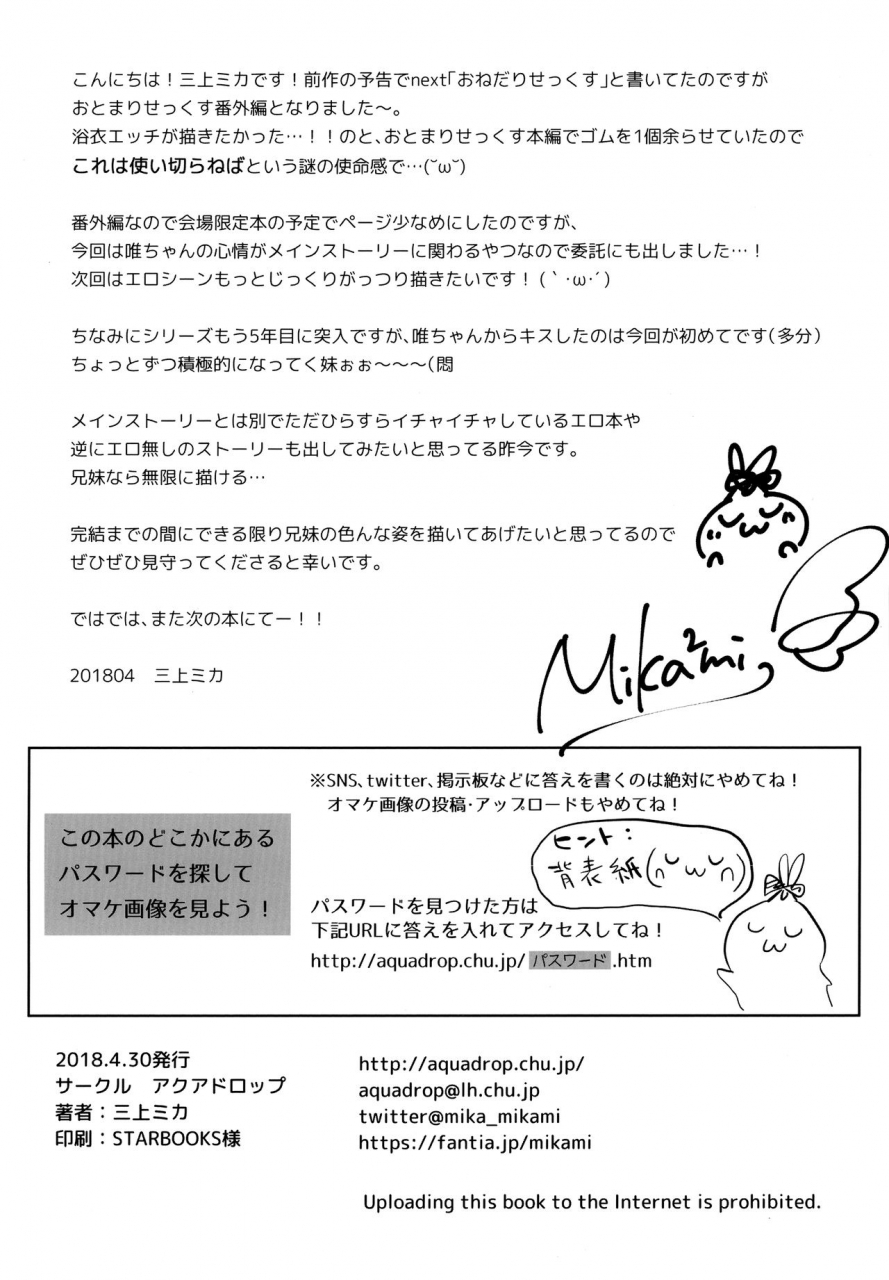 こんにちは！三上ミカです！前作の予告でnext「おねだりせっくす」と書いてたのですが
おとまりせっくす番外編となりました～。
浴衣エッチが描きたかった…！！のと、おとまりせっくす本編でゴムを1個余らせていたので
これは使い切らねばという謎の使命感で…(˘ω˘)
番外編なので会場限定本の予定でページ少なめにしたのですが、
今回は唯ちゃんの心情がメインストーリーに関わるやつなので委託にも出しました…！
次回はエロシーンもっとじっくりがっつり描きたいです！(｀･ω･´)
ちなみにシリーズもう5年目に突入ですが、唯ちゃんからキスしたのは今回が初めてです(多分)
ちょっとずつ積極的になってく妹ぉぉ～～～(悶
メインストーリーとは別でただひらすらイチャイチャしているエロ本や
逆にエロ無しのストーリーも出してみたいと思ってる昨今です。
兄妹なら無限に描ける…
完結までの間にできる限り兄妹の色んな姿を描いてあげたいと思ってるので
ぜひぜひ見守ってくださると幸いです。
ではでは、また次の本にてー！！
201804　三上ミカ
Mika²mi
※SNS、twitter、掲示板などに答えを書くのは絶対にやめてね！
オマケ画像の投稿・アップロードもやめてね！
この本のどこかにある
パスワードを探して
オマケ画像を見よう！
ヒント：
背表紙
パスワードを見つけた方は
下記URLに答えを入れてアクセスしてね！
http://aquadrop.chu.jp/ パスワード .htm
2018.4.30発行
サークル　アクアドロップ
著者：三上ミカ
印刷：STARBOOKS様
http://aquadrop.chu.jp/
aquadrop@lh.chu.jp
twitter@mika_mikami
https://fantia.jp/mikami
Uploading this book to the Internet is prohibited.